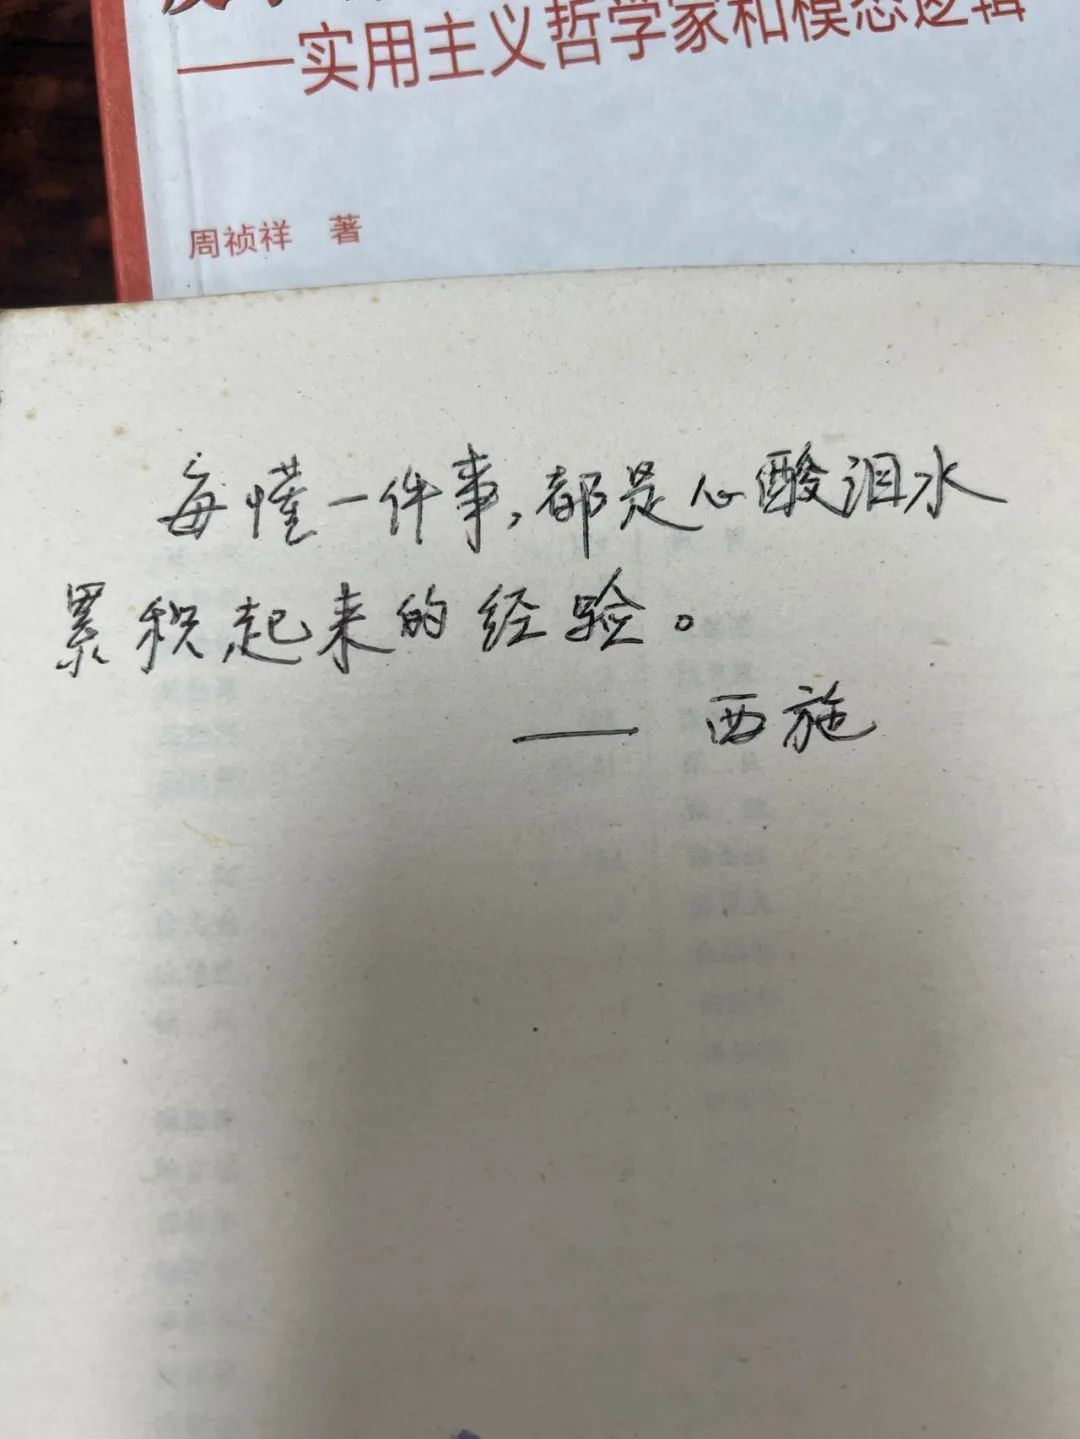 ——实用主义哲学家和模态逻辑
周祯祥 著
每懂一件事,都是心酸泪水
累积起来的经验。
—— 西施